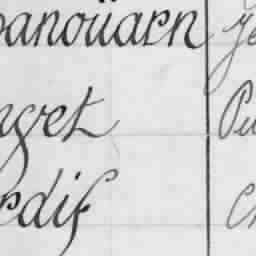 panoüarn Je
nget Pu
rdif Ch